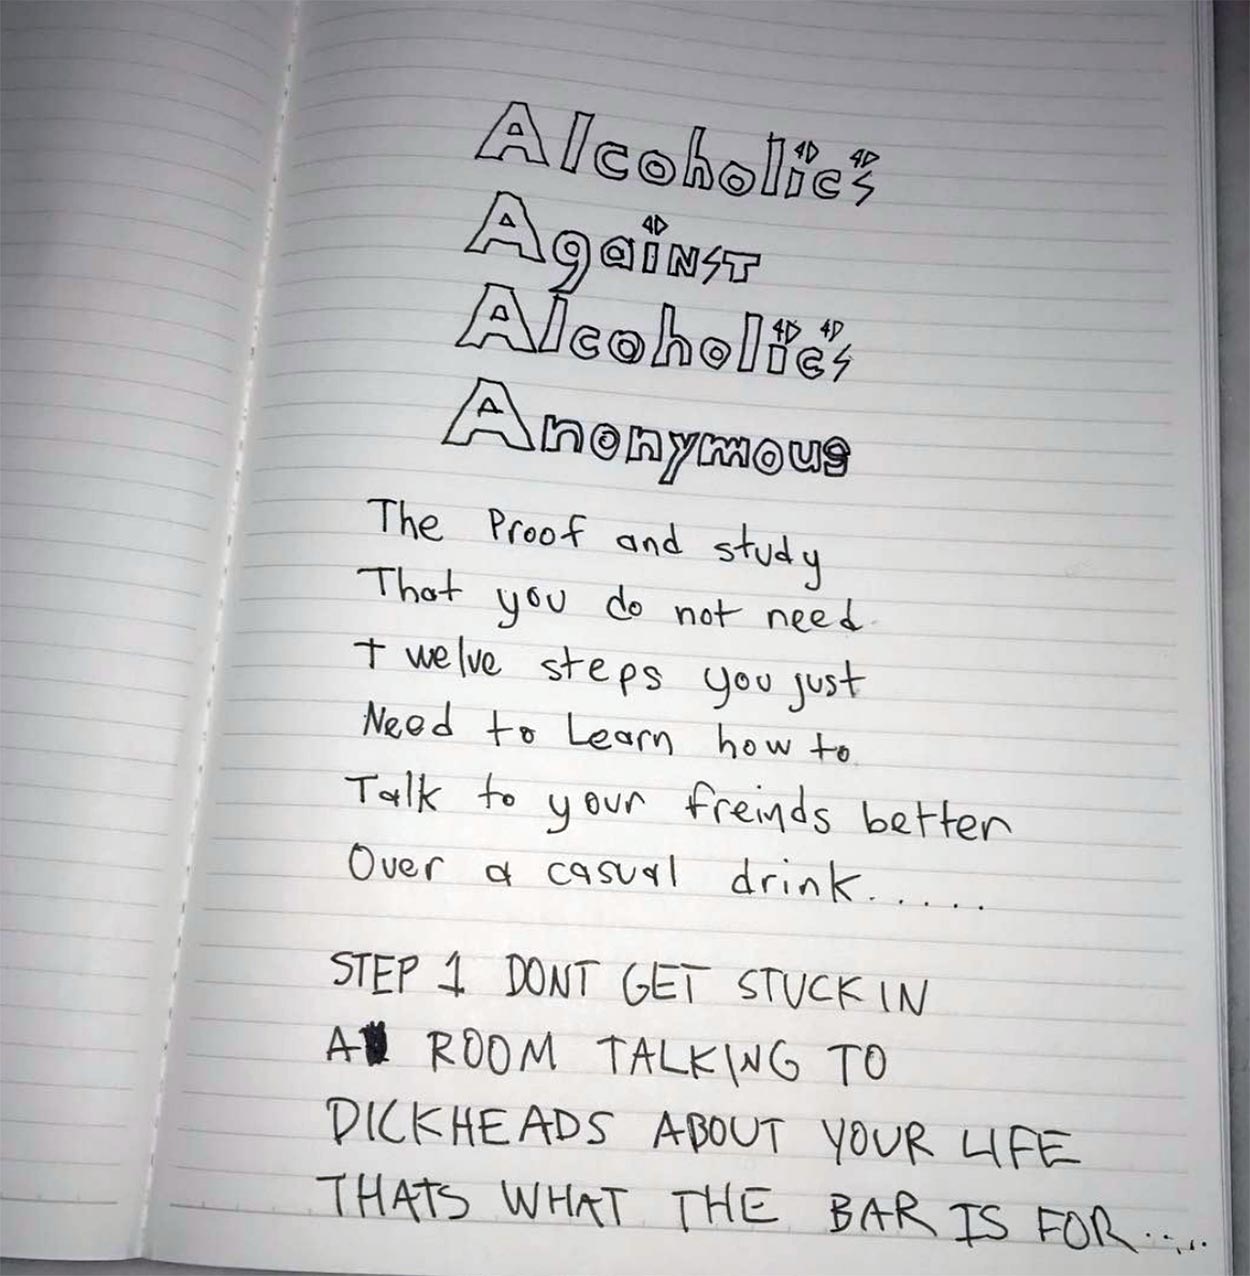 Alcoholic's
Against
Alcoholic's
Anonymous
The Proof and study
That you do not need
twelve steps you just
Need to Learn how to
Talk to your freinds better
Over a casual drink......
STEP 1 DONT GET STUCK IN
A ROOM TALKING TO
DICKHEADS ABOUT YOUR LIFE
THATS WHAT THE BAR IS FOR......